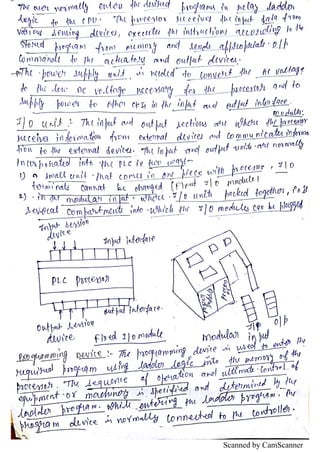 The user normally enters the desired programs in relay ladder
logic to the CPU. The processor receives the input data from
various sensing devices, executes the instructions according to the
stored program from memory and sends appropriate o/p
Commands to the actuators and output devices.
→ The power supply unit is needed to convert the AC voltage
to the low DC voltage necessary for the processor and to
supply power to other in the input and output interface
modules.
I/O unit :- The input and output sections are where the processor
receives information from external devices and communicates informa
tion to the external devices. The input and output units are normally
Incorporated into the PLC in two ways -
1) a small unit that comes in one piece with processor, I/O
terminals cannot be changed [Fixed I/O module]
2) - in the modular input - where I/O unit packed together,
several compartments into which the I/O modules can be plugged
Input sension
device
Input interface
PLC Processor
output interface.
Output sension
device
Fixed I/O module
Power
I/P
O/P
modular input
Programming Device :- The programming device is used to enter the
required program using ladder logic into the memory of the
processor. The sequence of operation and ultimate control of
equipment or machinery is specified and determined by the
ladder program. While entering the ladder program, the
program device is normally connected to the controller.
Scanned by CamScanner